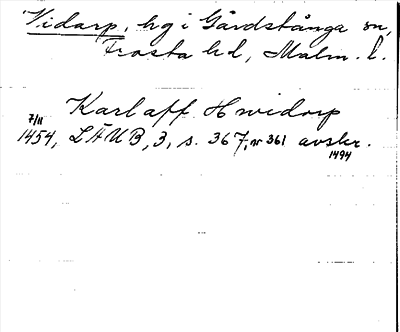 Vidarp, hg i Gårdstånga sn,
Frosta hd, Malm. l.
Karl aff Hwidorp
7/11
1454, LÄUB, 3, s. 367, nr 361 avskr.
1494